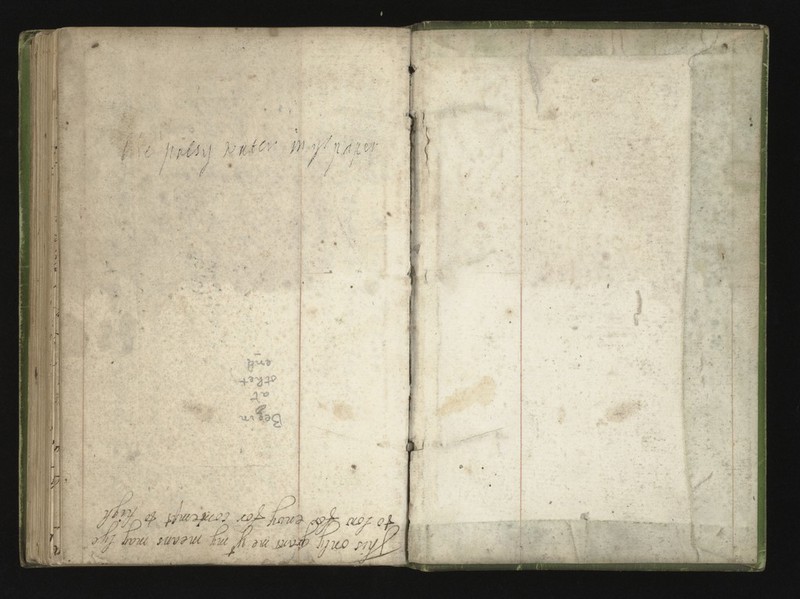 palsy water
Begin
at
other
end
This only grant me yt my means may lye
to low for envy for contempt to high